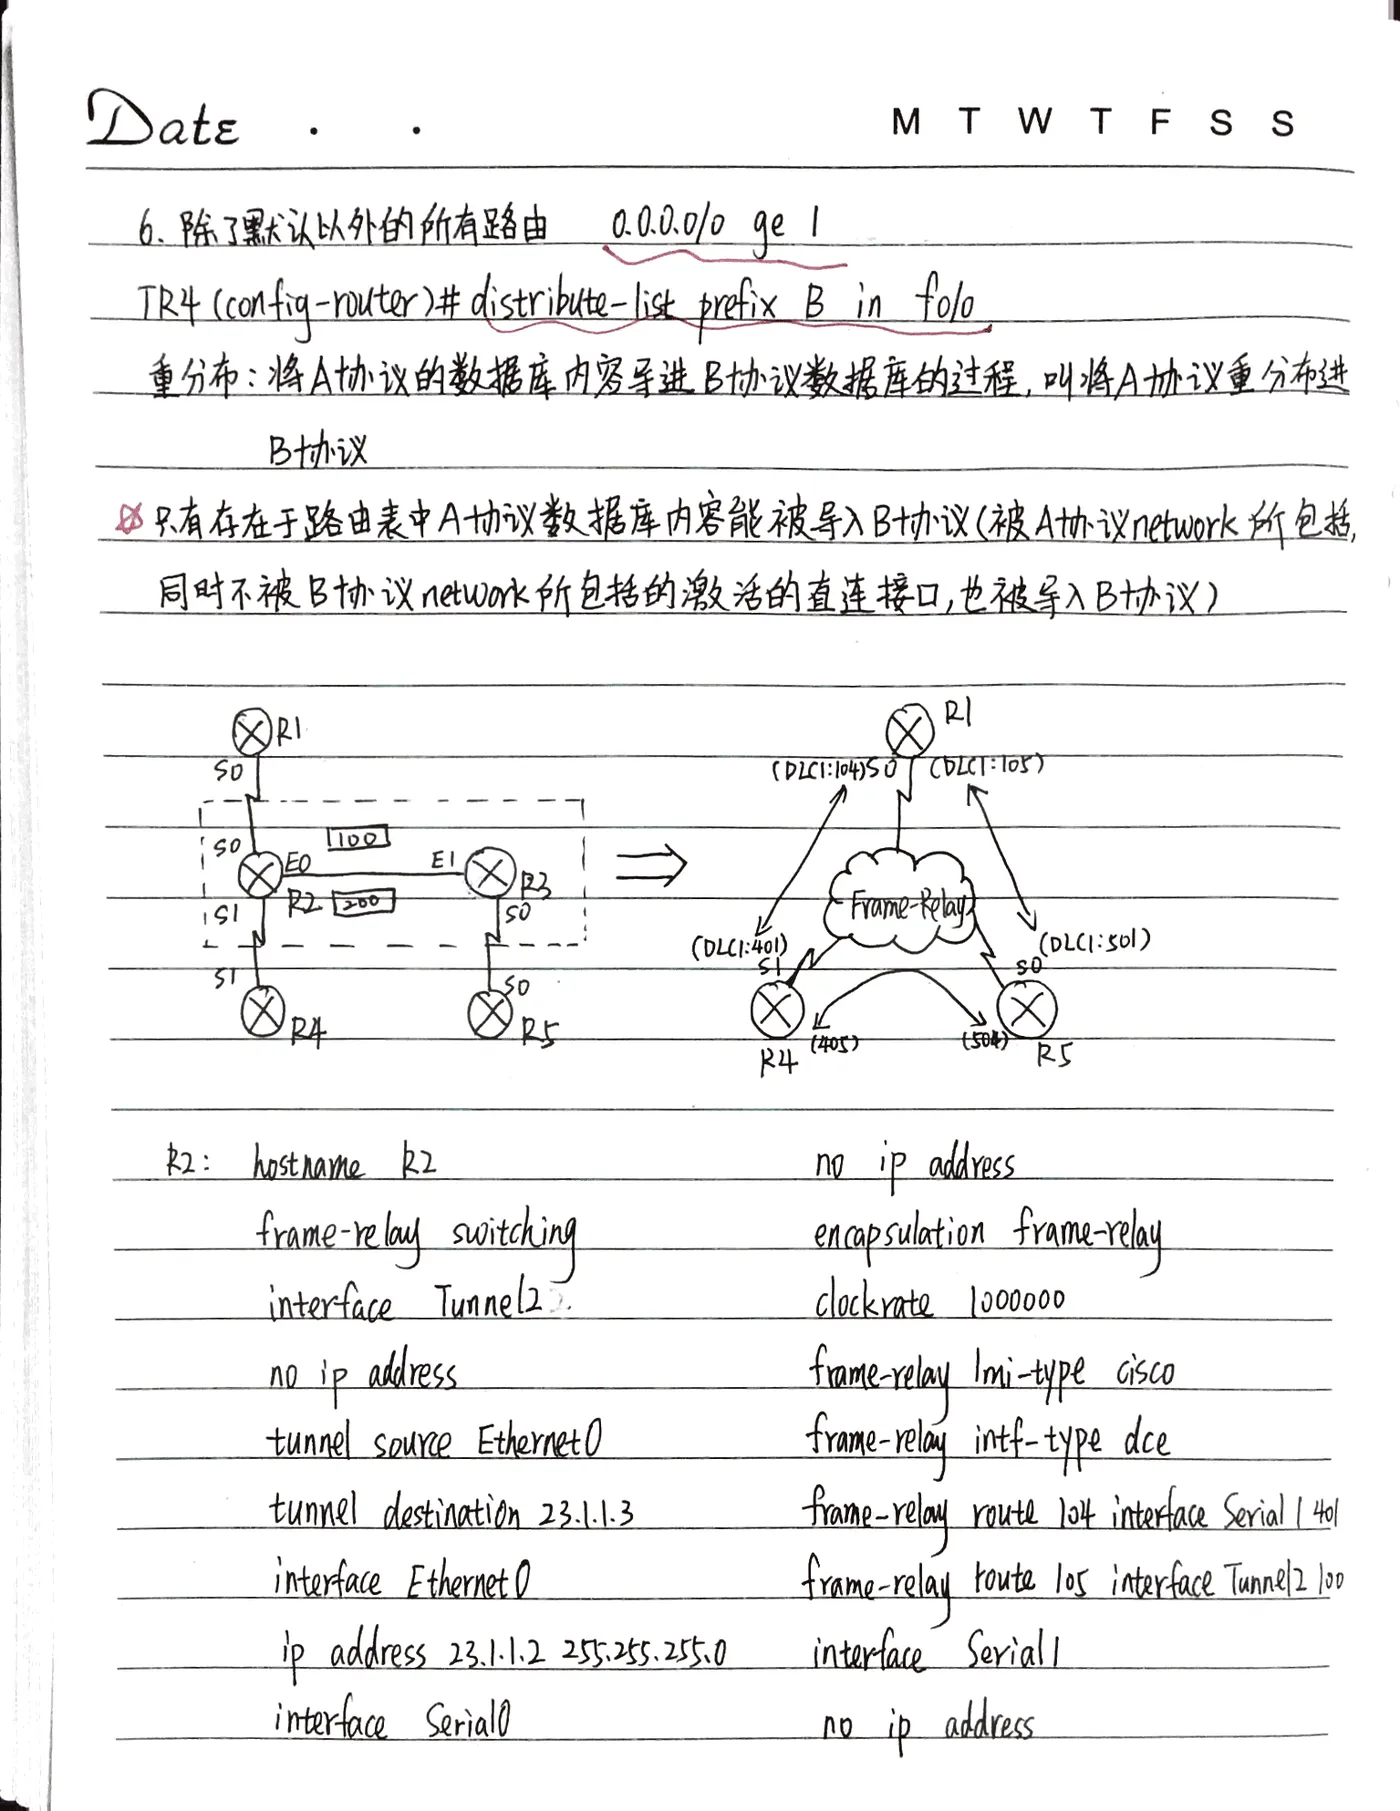 Date . . M T W T F S S
6. 除了默认以外的所有路由 0.0.0.0/0 ge 1
TR4(config-router)# distribute-list prefix B in f0/0
重分布：将A协议的数据库内容导进B协议数据库的过程，叫将A协议重分布进
B协议
只有存在于路由表中A协议数据库内容能被导入B协议（被A协议network所包括，
同时不被B协议network所包括的激活的直连接口，也被导入B协议）
R1
S0
S0
100
E0
E1
R2
200
R3
S1
S0
S1
S0
R4
R5
R1
(DLCI:104) S0 (DLCI:105)
Frame-Relay
(DLCI:401)
(DLCI:501)
S1
S0
(405)
(504)
R4
R5
R2: hostname R2
frame-relay switching
interface Tunnel2
no ip address
tunnel source Ethernet0
tunnel destination 23.1.1.3
interface Ethernet0
ip address 23.1.1.2 255.255.255.0
interface Serial0
no ip address
encapsulation frame-relay
clockrate 1000000
frame-relay lmi-type cisco
frame-relay intf-type dce
frame-relay route 104 interface Serial1 401
frame-relay route 105 interface Tunnel2 100
interface Serial1
no ip address